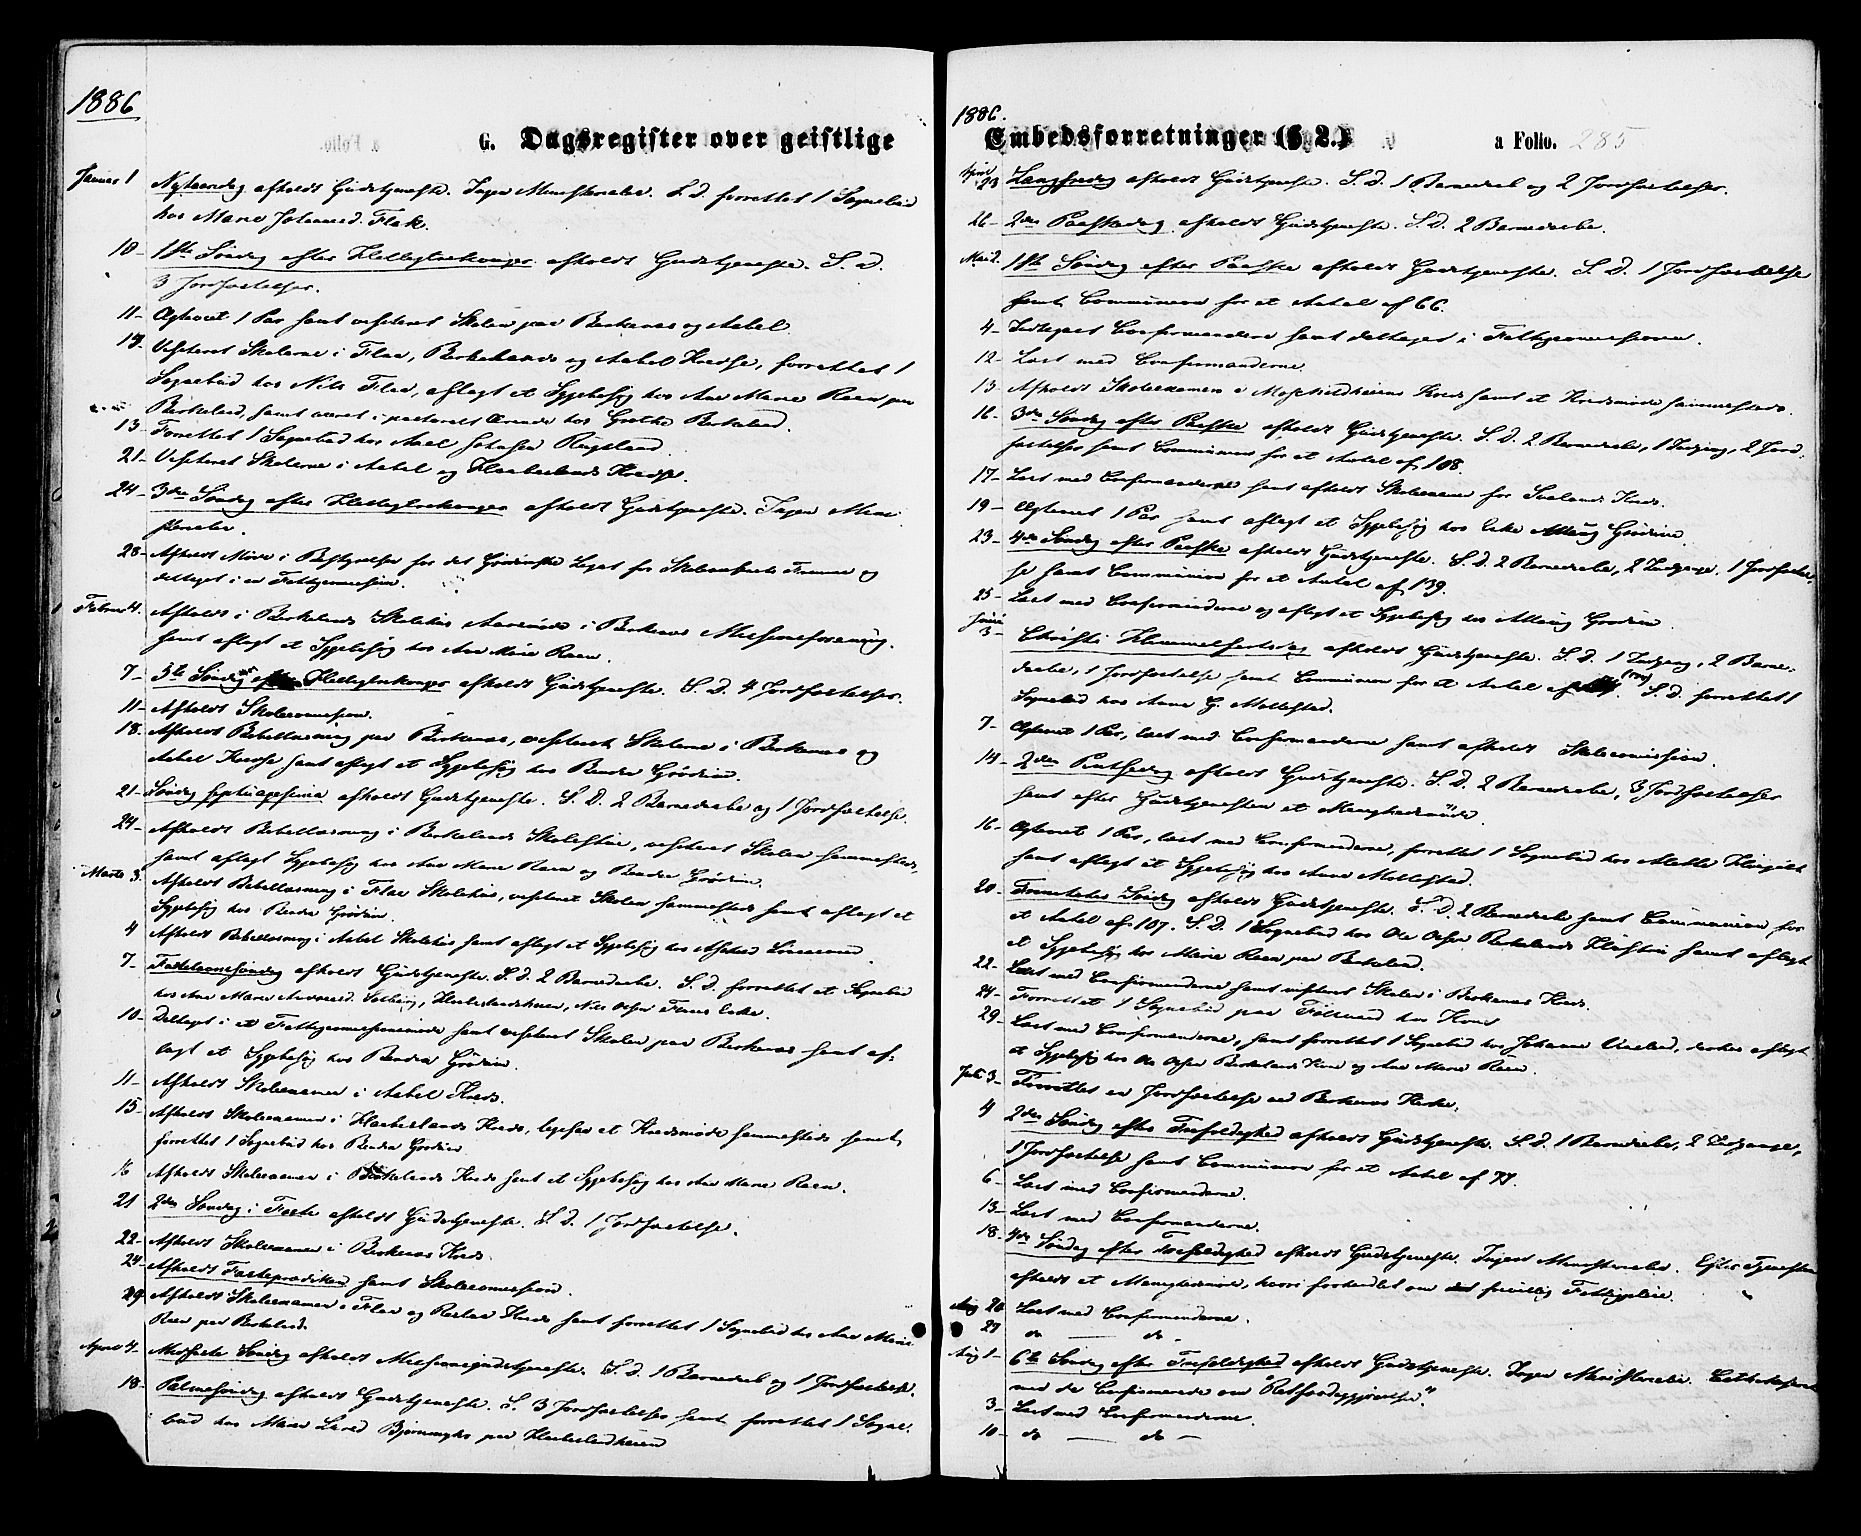 1886
G. Dagsregister over geistlige
Januar 1 Nytaarsdag afholdt Gudstjeneste. Ingen Ministerialier. S. D. forrettet 1 Sognebud
hos Marie Flak.
10 1ste Søndag efter Helligtrekonger afholdt Gudstjeneste. S. D.
3 Jordfæstelser.
11 Ægteviet 1 Par samt visiteret Skolen paa Birkenæs og Aabel.
Visiteret Skolerne i Flaa, Birkelands og Aabel Kredse, forrettet 1
Sognebud hos Nils Flaa, aflagt et Sygebesøg hos Ane Marie Raen paa
Birkeland, samt været i pastoralt Ærende hos Grethe Birkeland.
13 Forrettet 1 Sognebud hos Aasel Rugsland.
21 Visiteret Skolerne i Aabel og Haaberlands Kredse.
24 3die Søndag efter Helligtrekonger afholdt Gudstjeneste. Ingen Mini-
sterialier.
28 Afholdt Møde i Bestyrelsen for det Legat for og
deltaget i en Fattigcommission.
Februar 4. Afholdt i Birkelands Skolehus Aarsmøde i Birkenæs Missionsforening.
samt aflagt et Sygebesøg hos Ane Marie Raen.
7 5te Søndag efter Helligtrekonger afholdt Gudstjeneste. S. D. 4 Jordfæstelser.
11 Afholdt Skolecommission.
18 Afholdt Bibellæsning paa Birkenæs, visiteret Skolerne i Birkenæs og
Aabel Kredse samt aflagt et Sygebesøg hos Berte
21 Søndag septuagesima afholdt Gudstjeneste. S. D. 2 Barnedaabe og 1 Jordfæstelse.
24 Afholdt Bibellæsning i Birkelands Skolestue, visiteret Skolen sammesteds,
samt aflagt Sygebesøg hos Ane Marie Raen og
Marts 3. Afholdt Bibellæsning i Flaa Skolehus, visiteret Skolen sammesteds samt aflagt et
Sygebesøg hos
4 Afholdt Bibellæsning i Aabel Skolehus samt aflagt et Sygebesøg hos
7 Fastelavnssøndag afholdt Gudstjeneste. S. D. 2 Barnedaabe. S. D. forrettet et Sognebud
hos Ane Marie
10 Deltaget i et Fattigcommissionsmøde samt visiteret Skolen paa Birkenæs samt af-
lagt et Sygebesøg hos
11 Afholdt Skoleexamen i Aabel Kreds.
15 Afholdt Skoleexamen i Haaberlands Kreds, ligesaa et Kredsmøde sammesteds samt
forrettet 1 Sognebud hos
16 Afholdt Skoleexamen i Birkelands Kreds samt et Sygebesøg hos Ane Marie Raen.
21 2den Søndag i Faste afholdt Gudstjeneste. S. D. 1 Jordfæstelse.
22 Afholdt Skoleexamen i Birkenæs Kreds.
24 Afholdt Fasteprædiken samt Skolecommission.
29 Afholdt Skoleexamen i Flaa og Kreds samt forrettet 1 Sognebud hos Ane Marie
Raen paa Birkeland.
April 4. Midfaste Søndag afholdt Missionsgudstjeneste. S. D. 1 Barnedaab og 1 Jordfæstelse.
18 Palmesøndag afholdt Gudstjeneste. S. 3 Jordfæstelser, samt forrettet 1 Sogne-
bud hos Maren paa
1886.
Embedsforretninger (§ 2.) a Folio. 285
April 23 Langfredag afholdt Gudstjeneste. S. D. 1 Barnedaab og 2 Jordfæstelser.
26 2den Paaskedag afholdt Gudstjeneste. S. D. 2 Barnedaabe.
Mai 2. 1ste Søndag efter Paaske afholdt Gudstjeneste. S. D. 1 Jordfæstelse
samt Communion for et Antal af 66.
4 Indtegnet Confirmanderne samt deltaget i Fattigcommissionen.
12 Læst med Confirmanderne.
13 Afholdt Skoleexamen i Kreds samt et Kredsmøde sammesteds.
16 3die Søndag efter Paaske afholdt Gudstjeneste. S. D. 2 Barnedaabe, 1 Indgang, 2 Jord-
fæstelser samt Communion for et Antal af 108.
17 Læst med Confirmanderne samt afholdt Skoleexamen for Kreds.
19 Ægteviet 1 Par samt aflagt et Sygebesøg hos
23 4de Søndag efter Paaske afholdt Gudstjeneste. S. D. 2 Barnedaabe, 2 Indgange, 1 Jordfæstel-
se samt Communion for et Antal af 139.
25 Læst med Confirmanderne og aflagt et Sygebesøg hos
Juni 3 Christi Himmelfartsdag afholdt Gudstjeneste. S. D. 1 Indgang, 2 Barne-
daabe, 1 Jordfæstelse samt Communion for et Antal af S. D. forrettet 1
Sognebud hos Anne G. Mollestad.
7 Ægteviet 1 Par, læst med Confirmanderne samt afholdt Skolecommission.
14 2den Pintsedag afholdt Gudstjeneste. S. D. 2 Barnedaabe, 3 Jordfæstelser
samt efter Gudstjenesten et Menighedsmøde.
16 Ægteviet 1 Par, læst med Confirmanderne, forrettet 1 Sognebud hos
samt aflagt et Sygebesøg hos Anne Mollestad.
20 Trinitatis Søndag afholdt Gudstjeneste. S. D. 2 Barnedaabe samt Communion for
et Antal af 107. S. D. 1 Sognebud hos Ole Olsen Birkelands samt aflagt
et Sygebesøg hos Marie Raen paa Birkeland.
22 Læst med Confirmanderne samt visiteret Skolen i Birkenæs Kreds.
24 Forrettet 1 Sognebud paa hos
29 Læst med Confirmanderne, samt forrettet 1 Sognebud hos Johanne aflagt
et Sygebesøg hos Ole Olsen Birkelands Kone og Ane Marie Raen.
Juli 3 Forrettet en Jordfæstelse ved Birkenæs Kirke.
4 2den Søndag efter Trefoldighed afholdt Gudstjeneste. S. D. 1 Barnedaab, 2 Indgange,
1 Jordfæstelse samt Communion for et Antal af 77.
6 Læst med Confirmanderne.
13 Læst med Confirmanderne.
18 4de Søndag efter Trefoldighed afholdt Gudstjeneste. Ingen Ministerialier. Efter Tjenesten
afholdt et Menighedsmøde, hvori forhandlet om frivillig Fattigpleie.
Aug 20 Læst med Confirmanderne.
27 do — do -
Aug 1 6te Søndag efter Trefoldighed afholdt Gudstjeneste. Ingen Ministerialier.
med de Confirmerede om "Retfærdiggjørelse".
3 Læst med Confirmanderne.
10 do — do —